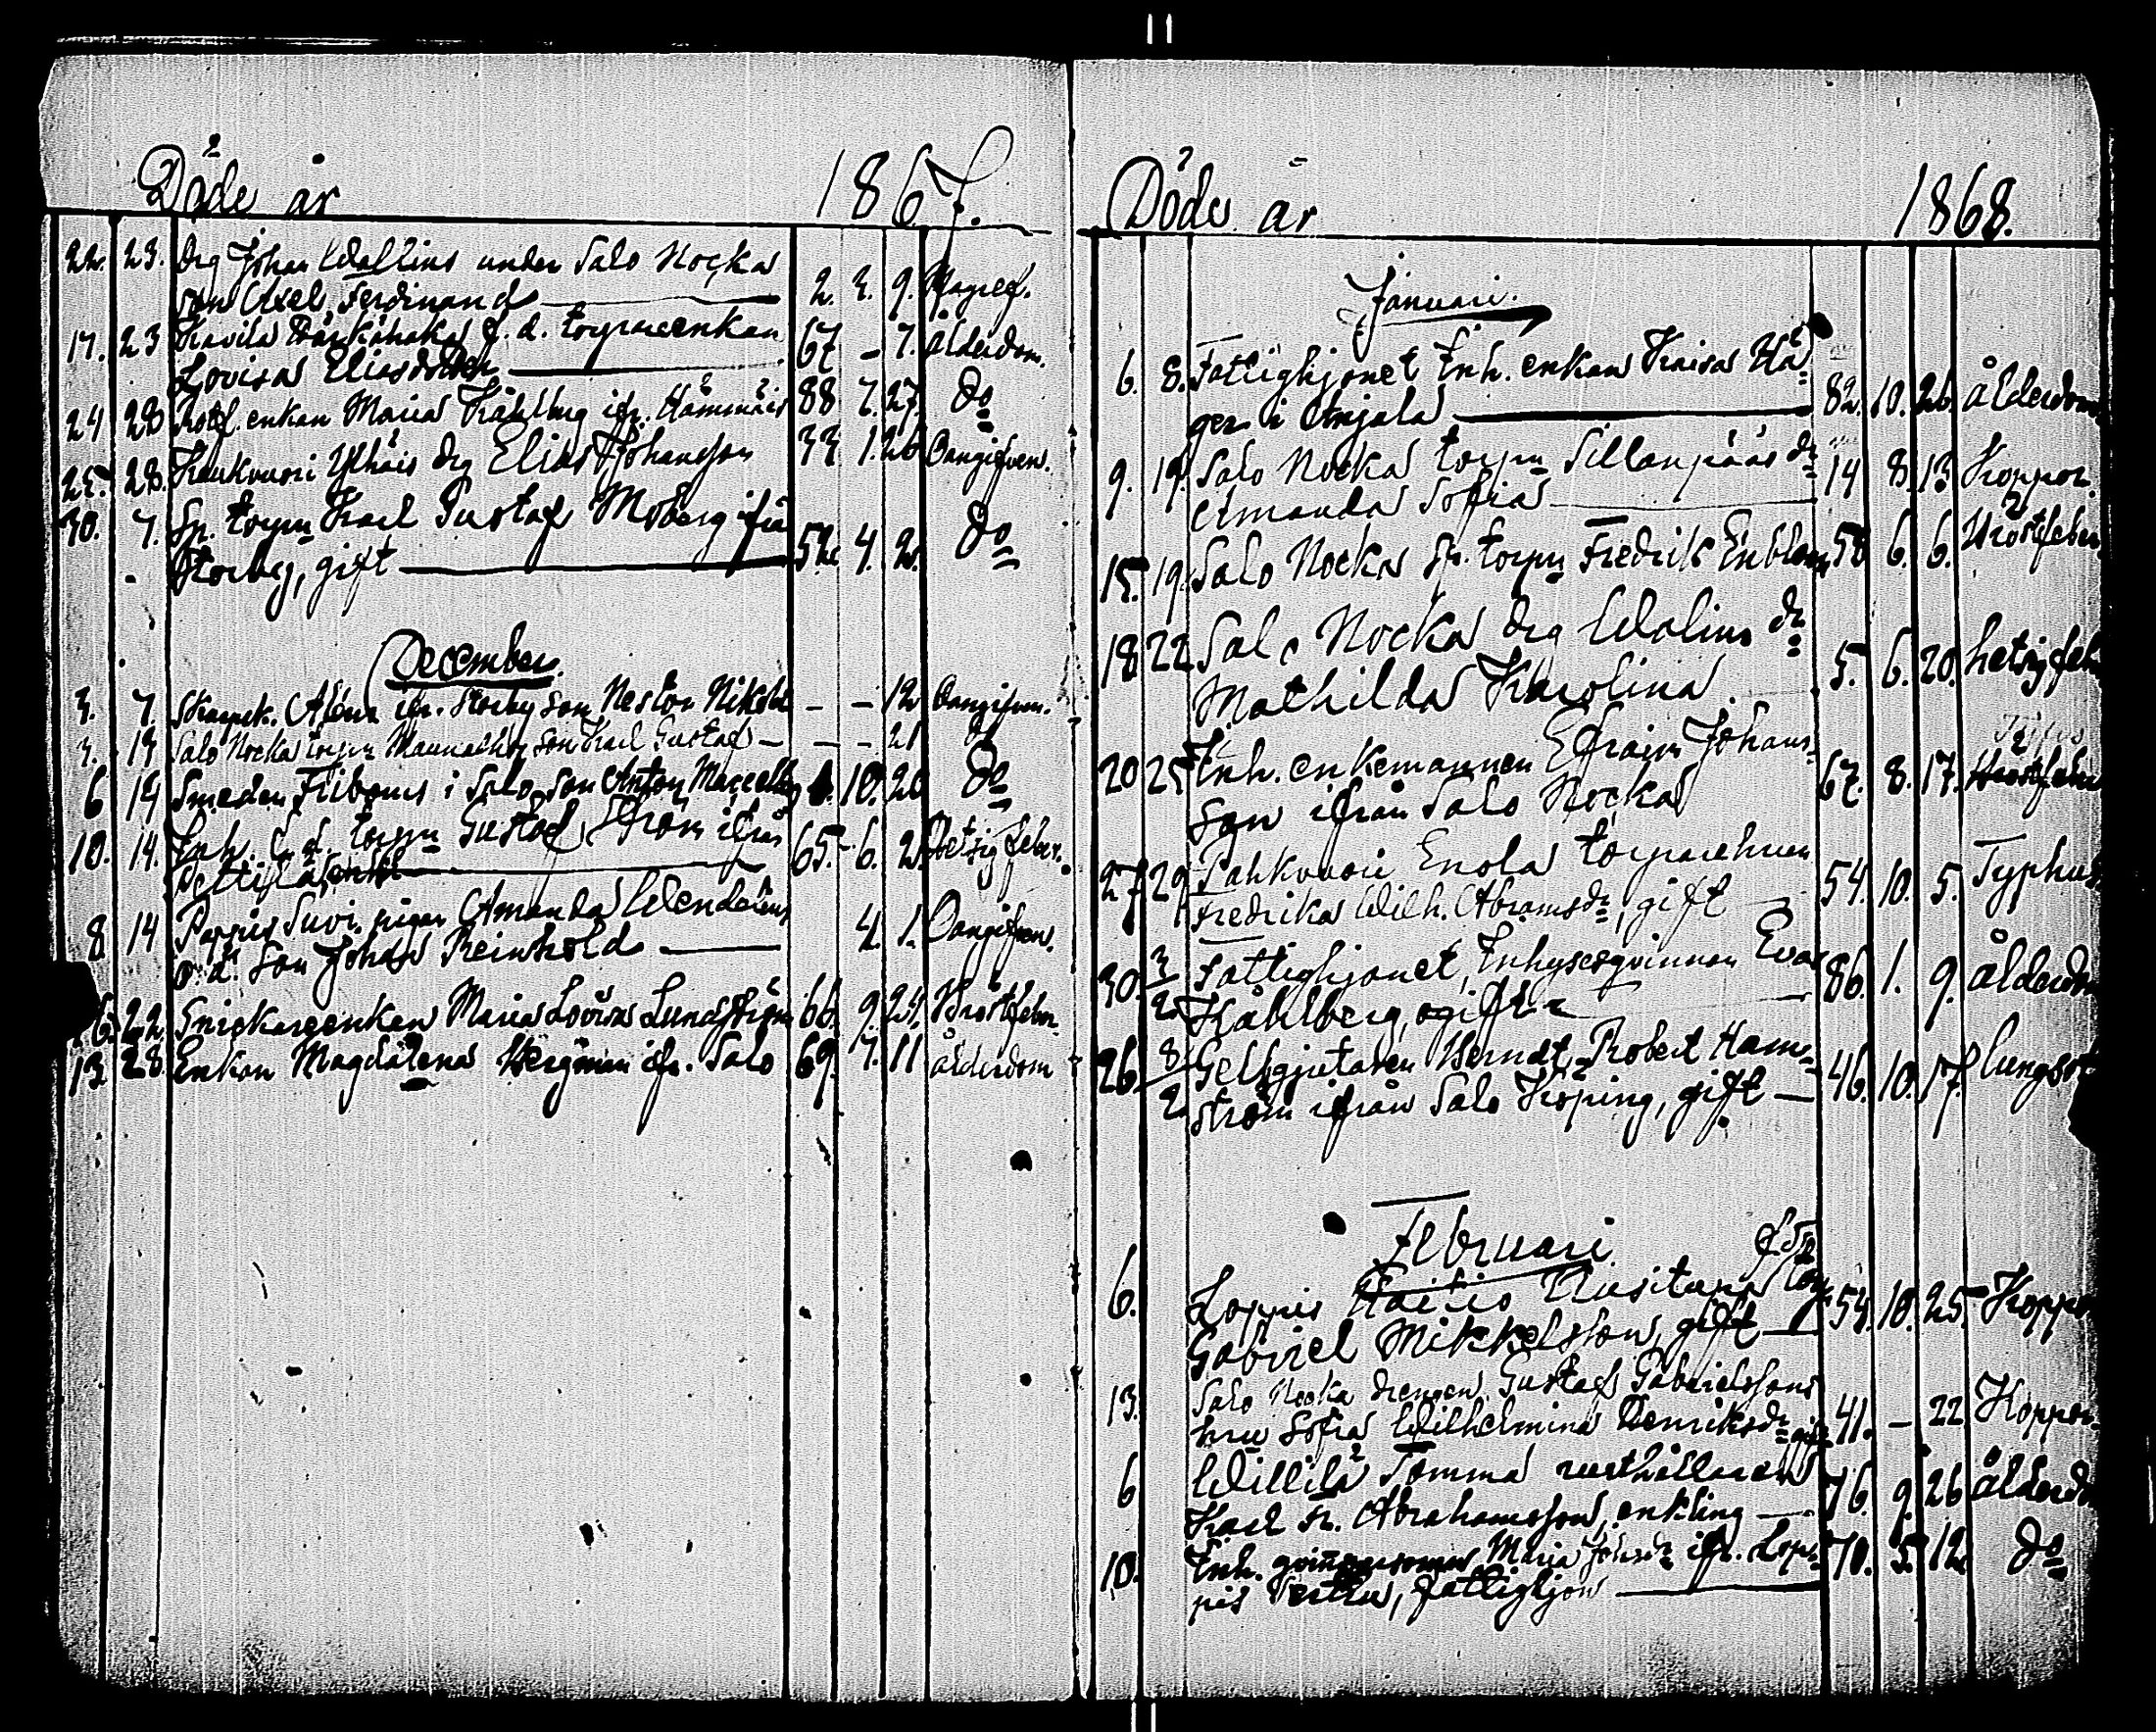 Döde år 1867.
22. 23. Drg Johan Wallins under Salo Nocka
son Axel Ferdinand — 2. 2. 9. Magref.
17. 23 Kavila f. d. torpareenkan
Lovisa Eliasdotter — 67 – 7. Ålderdom.
24 28 Rotef. enkan Maria Kåhlberg ifr. Hämmäis 88 7. 27. do
25. 28. Kaukvuori Ylhäis drg Elias Johansson 33 1. 26 Oangifven.
30. 7. Sp. torpn Karl Gustaf Moberg ifrå
Storby, gift — 52. 4. 2. do
December.
3. 7. ifr. Storby son Nestor Nikolai – – 12 Oangifven.
3. 14 Salo Nocka torpn son Karl Gustaf – – – 21 do
6 14 Smeden Friboms i Salo son Anton Marcellus 1. 10. 20 do
10. 14. Inh. f. d. torpn Gustaf Ström ifrån
Pettilä, enkl — 65. 6. 2. Hetsig feber.
8 14 Pappis Suvi pigan Amanda Wendelins
o. ä. son Johan Reinhold — 4. 1. Oangifven.
16. 22 Snickareenkan Maria Lovisa Lundström 66 9. 24. Bröstfeber.
13 28 Enkan Magdalena Bergman ifr. Salo 69. 7. 11 ålderdom
Döde år 1868.
Januari.
6. 8. Fattighjonet Inh. enkan Kaisa Hå=
ger i Anjala — 82. 10. 26. ålderdom
9. 19. Salo Nocka torpn Sillanpääs dr
Amanda Sofia — 14 8. 13 Koppor.
15. 19. Salo Nocka sp. torpn Fredrik Enblom 58 6. 6. Bröstfeber
18 22 Salo Nocka drg Walins dr
Mathilda Karolina. 5. 6. 20. hetsig feb
20 25 Inh. enkemannen Efraim Johans=
son ifrån Salo Nocka 67. 8. 17. Bröstfeber
27 29 Pahkvuori Enola torparehus
Fredrika Wilh. Abramsdr, gift — 54. 10. 5. Typhus
30. 3/2 Fattighjonet, Inhysesqvinnan Eva
Kåhlberg, ogift — 86. 1. 9. ålderdo
26 8/2 Gelbgjutaren Berndt Robert Ham=
ström ifrån Salo Köping, gift — 46. 10. 17. lungsot
Februari
6. Loppis torp.
Gabriel Mikkelsson, gift — 54. 10. 25. Koppor
13. Salo Nocka drengen Gustaf Gabrielssons
hru Sofia Wilhelmina Henriksdr gift 41. – 22 Koppor.
6 Willilä Tomma rusthållaren
Karl Fr. Abrahamsson, enkling — 76. 9. 26 ålderdo
10. Inh. qvinnspersonen Maria Johsdr ifr. Lop=
pis Perttu, fattighjon — 70. 5. 12 do